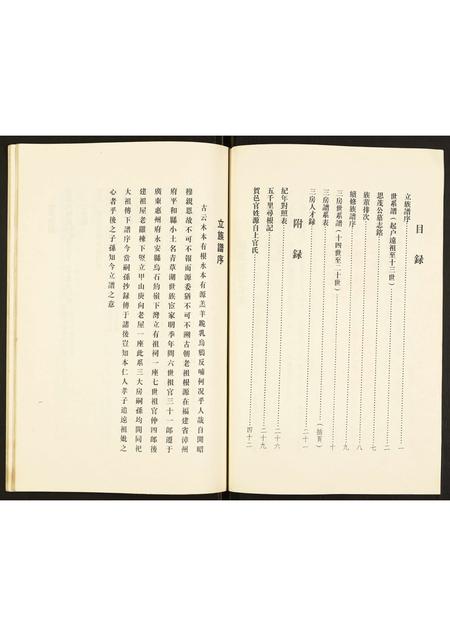 目录
立族谱序……一
世系谱（起卢遠祖至十三世）……二
思茂公墓志銘……七
族董排次……八
續修族谱序……九
三房世系谱（十四世至二十世）……十
三房谱系表……（插頁）
三房人才録……二十一
附録
紀年对照表……二十六
五千里尋根記……二十九
賀邑官姓源自上官氏……四十二
立族譜序
古云木本有根水本有源羔羊跪乳烏鴉反哺何况乎人哉自開昭
穆親恩故不可不報而源委猶不可不溯古朝老祖根源在福建省漳州
府平和縣小土名青草湖世族宦家明季年間六世祖官三十一郎遷于
廣東惠州府永安縣烏石約嶺下灣立有祖祠一座七世祖官仲四郎後
建祖屋老羅棟下竪立甲山庚向老屋一座此系三大房嗣孫均聞同祀
大祖傳下譜序今當嗣孫抄録傳于諸後豈知本仁人孝子追遠祖妣之
心者乎後之子孫知今立譜之意
一